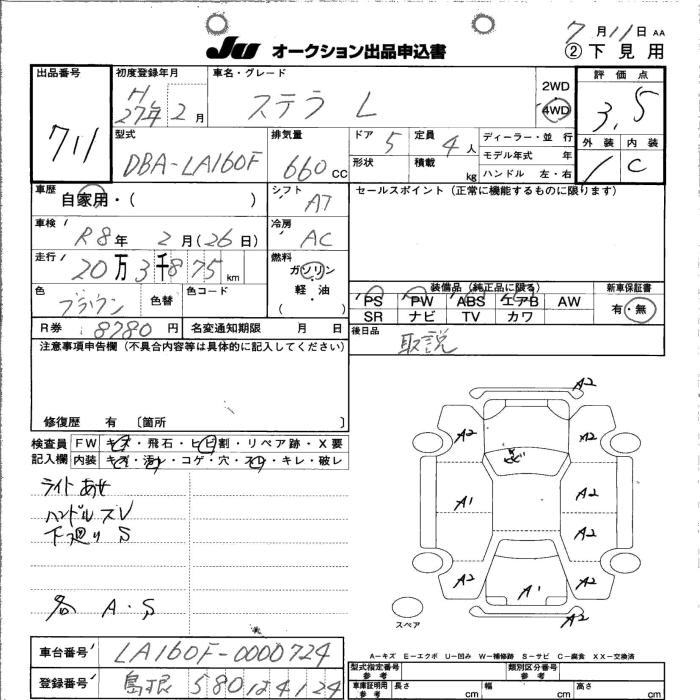 7月11日 AA
JU オークション出品申込書 ②下見用
出品番号 初度登録年月 車名・グレード 2WD 評価点
711 H27年2月 ステラ L 4WD 3.5
型式 排気量 ドア 定員 ディーラー・並行 外装 内装
DBA-LA160F 660cc 5 4人 モデル年式 年 1 C
形状 積載 kg ハンドル 左・右
車歴 シフト セールスポイント (正常に機能するものに限ります)
自家用・( ) AT
車検 冷房
R8年2月(26日) AC
走行 燃料
20万3千875km ガソリン
軽・油
( )
色 色替 色コード 装備品 (純正品に限る) 新車保証書
ブラウン PS PW ABS エアB AW 有・無
SR ナビ TV カワ
R券 8780円 名変通知期限 月 日 後日品
取説
注意事項申告欄 (不具合内容等は具体的に記入してください)
修復歴 有 〔箇所 〕
検査員 FW キズ・飛石・ヒビ割・リペア跡・X要
記入欄 内装 キズ・汚れ・コゲ・穴・スレ・キレ・破レ
ライトあせ
ハンドルスレ
下廻り S
各 A・S
A2
A2 A2
A1 A2
A2
A2 A1 A2
A2
スペア
A-キズ E-エクボ U-凹み W-補修跡 S-サビ C-腐食 XX-交換済
車台番号 LA160F-0000724
型式指定番号 参考 類別区分番号 参考
登録番号 島根 580
車庫証明用 参考 長さ cm 幅 cm 高さ cm